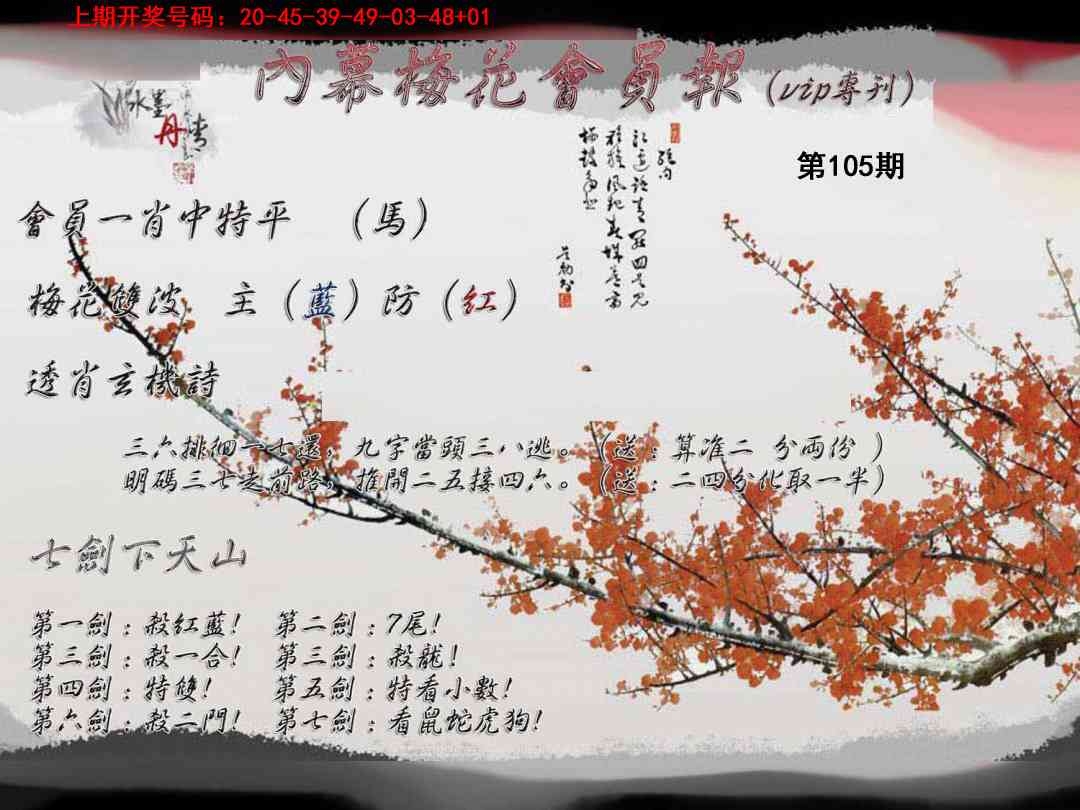 上期开奖号码：20-45-39-49-03-48+01
內幕梅花會員報（vip專刊）
水墨
丹青
第105期
會員一肖中特平 （馬）
梅花雙波 主（藍）防（紅）
透肖玄機詩
三六排徊一七還，九字當頭三八逃。（送：算准二 分兩份 ）
明碼三七走前路，推開二五接四六。（送：二四分化取一半）
七劍下天山
第一劍：殺紅藍！ 第二劍：7尾！
第三劍：殺一合！ 第三劍：殺龍！
第四劍：特雙！ 第五劍：特看小數！
第六劍：殺二門！ 第七劍：看鼠蛇虎狗！